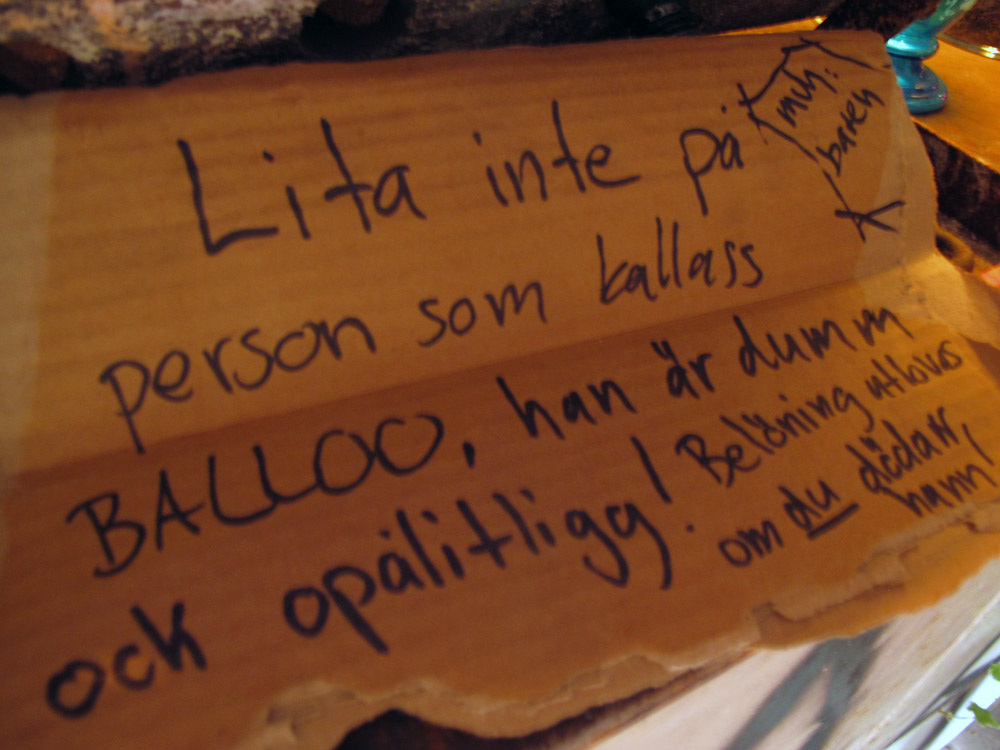 Lita inte på
person som kallass
BALLOO, han är dumm
ock opålitligg!
Belöning utlovas
om du dödarr
hann!
baren